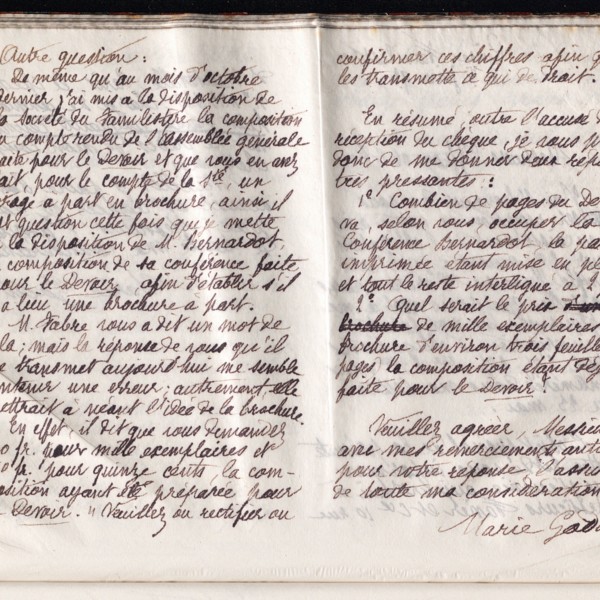 Autre question :
De même qu'au mois d'octobre
dernier j'ai mis à la disposition de
la Société du Familistère la composition
du compte rendu de l'assemblée générale
faite pour le Devoir et que vous en avez
fait, pour le compte de la Sté, un
tirage à part en brochure, ainsi il
est question cette fois que je mette
à la disposition de M. Bernardot,
la composition de sa conférence faite
pour le Devoir, afin d'établir s'il
a lieu une brochure à part.
M. Fabre vous a dit un mot de
la ; mais la réponse de vous qu'il
me transmet aujourd'hui me semble
contenir une erreur ; autrement, elle
mettrait à néant l'idée de la brochure.
En effet, il dit que vous demandez
0 fr. pour mille exemplaires et
0 fr. pour quinze cents, la com-
position ayant été préparée pour
le Devoir. " Veuillez ou rectifier ou
confirmer ces chiffres afin q
les transmette à qui de droit.
En résumé, outre l'accusé d
réception du chèque, je vous p
donc de me donner deux rép
très pressantes :
1° Combien de pages du De
va, selon vous, occuper la
Conférence Bernardot la pa
imprimée étant mise en pe
et tout le reste interligné à 2
2° Quel serait le prix
brochure de mille exemplaires
brochure d'environ trois feuille
pages, la composition étant dé
faite pour le Devoir ?
Veuillez agréer, Messieu
avec mes remerciements antic
pour votre réponse, l'assu
de toute ma considération
Marie God